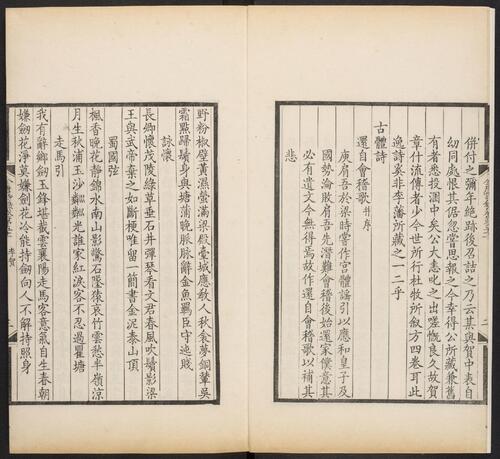 併付之彌年絶跡後召詰之乃云某與賀中表自
幼同處恨其倨忽嘗思報之今幸得公所藏兼舊
有者悉投溷中矣公大恚叱之出嗟慨良久故賀
章什流傳者少今世所行杜牧所敘方四卷耳此
逸詩奚非李藩所藏之一二乎
古體詩
還自會稽歌并序
庾肩吾於梁時嘗作宮體謠引以應和皇子及
國勢淪敗肩吾先潛難會稽後始還家僕意其
必有遺文今無得焉故作還自會稽歌以補其
悲
野粉椒壁黃濕螢滿梁殿臺城應教人秋衾夢銅輦吳
霜點歸鬢身與塘蒲晚脈脈辭金魚羈臣守迍賤
詠懷
長卿懷茂陵綠草垂石井彈琴看文君春風吹鬢影梁
王與武帝棄之如斷梗唯留一簡書金泥泰山頂
蜀國弦
楓香晚花靜錦水南山影驚石墜猿哀竹雲愁半嶺涼
月生秋浦玉沙粼粼光誰家紅淚客不忍過瞿塘
走馬引
我有辭鄉劒玉鋒堪截雲襄陽走馬客意氣自生春朝
嫌劒花淨暮嫌劒花冷能持劒向人不解持照身